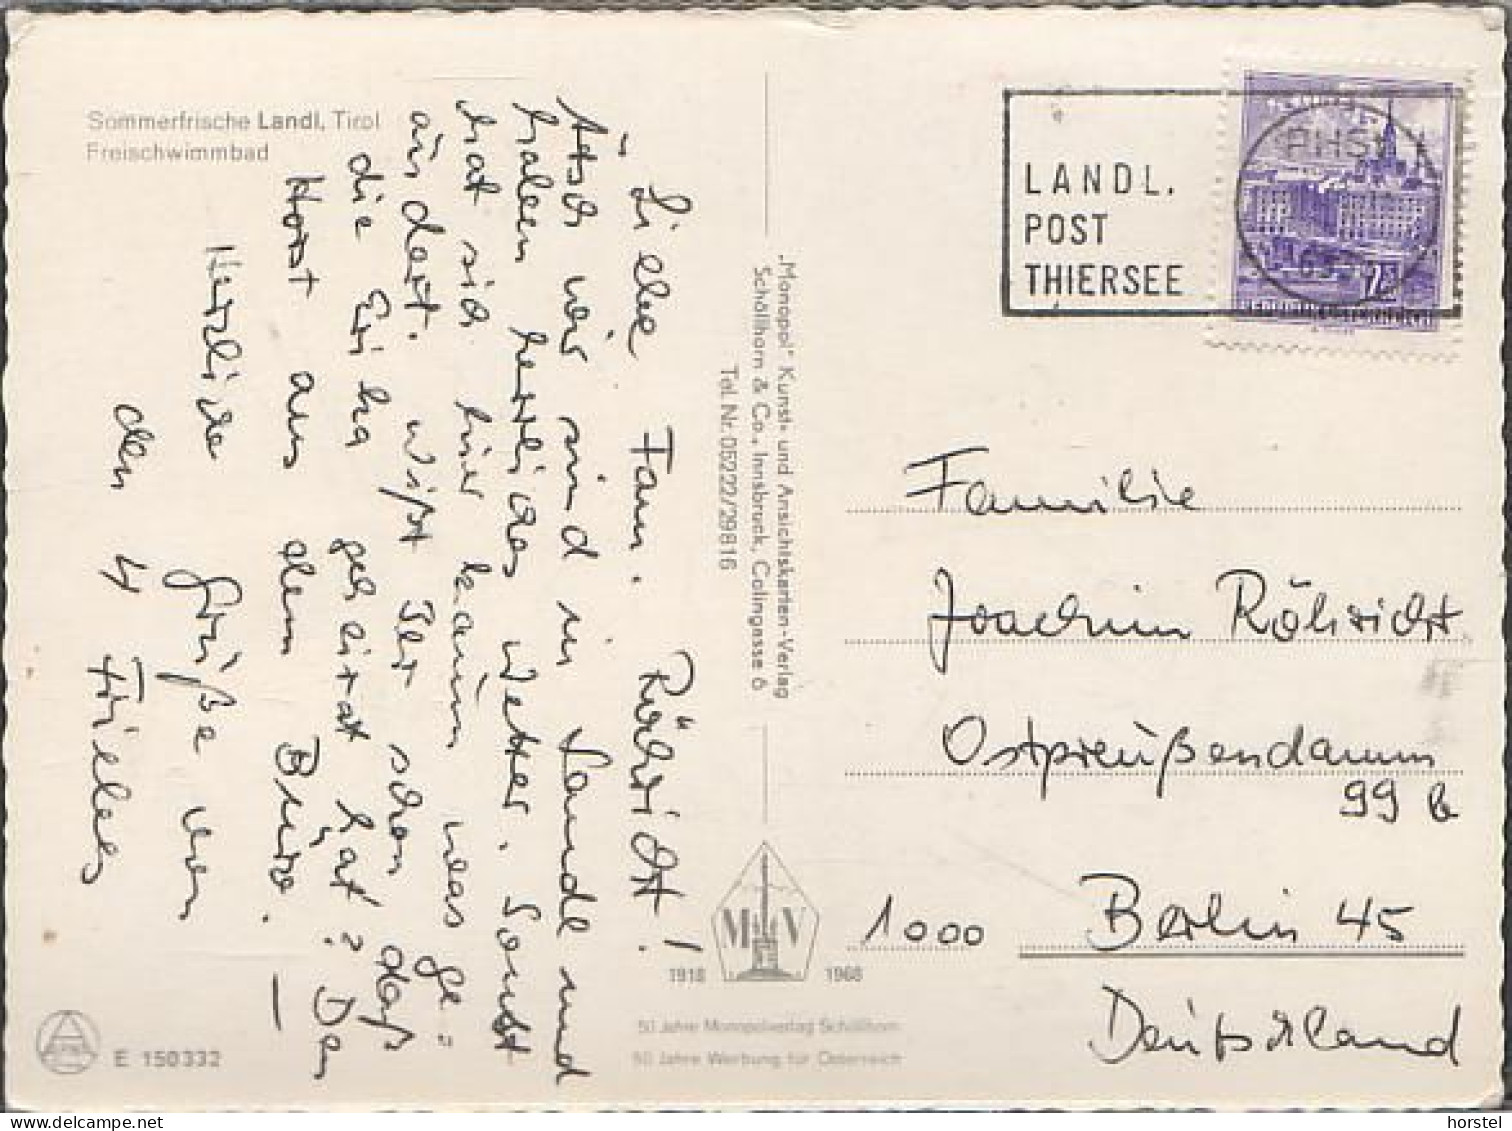 Sommerfrische Landl, Tirol
Freischwimmbad
Liebe Fam. Röhricht!
Also wir sind in Landl und
haben herrliches Wetter. Sonst
hat sich hier kaum was ge=
ändert. Wißt Ihr schon daß
die Erika geheiratet hat? Den
Horst aus dem Büro. —
Herzliche Grüße von
den 4 Frieles
E 150332
„Monopol" Kunst- und Ansichtskarten-Verlag
Schöllhorn & Co., Innsbruck, Colingasse 6
Tel. Nr. 05222/29816
M V
1918 1968
50 Jahre Monopolverlag Schöllhorn
50 Jahre Werbung für Österreich
LANDL.
POST
THIERSEE
REPUBLIK ÖSTERREICH
Familie
Joachim Röhricht
Ostpreußendamm
99 b
1000 Berlin 45
Deutschland
horstel